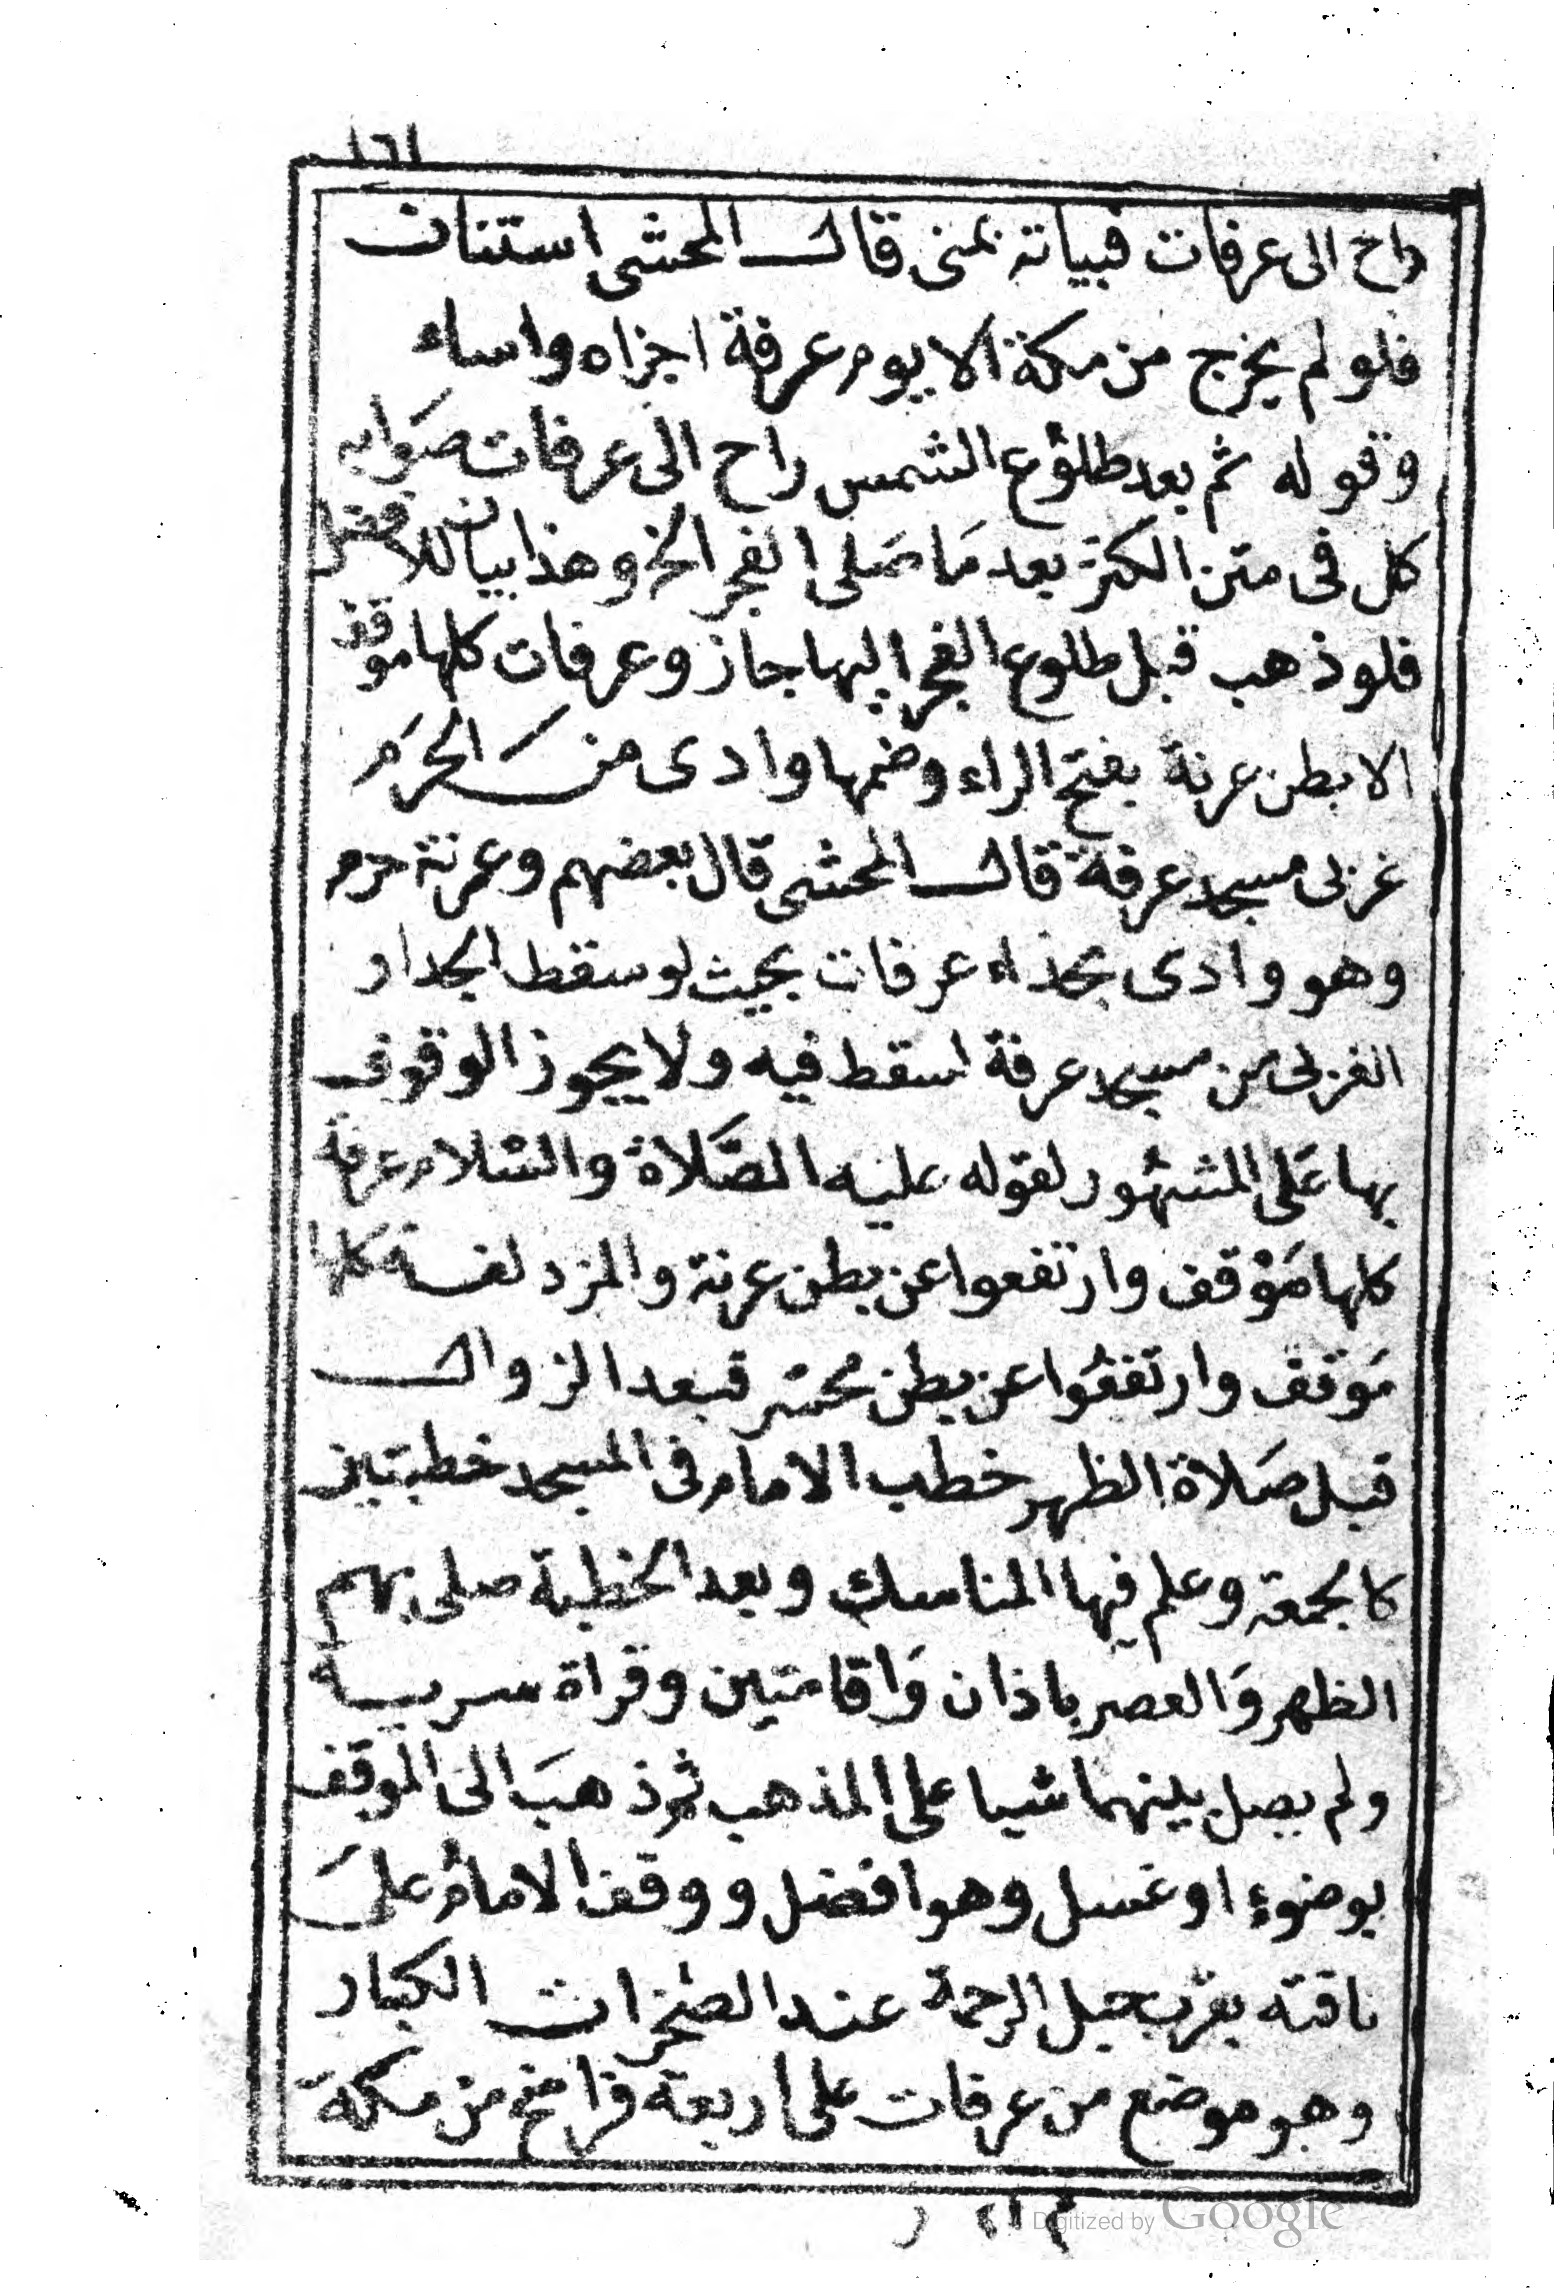 ١٦١
راح الى عرفات فبياته بمنى قال المحشى استنان
فلو لم يخرج من مكة الا يوم عرفة اجزاه واساء
وقوله ثم بعد طلوع الشمس راح الى عرفات صوابه
كل فى متن الكنز بعد ما صلى الفجر الخ وهذا بيان للافضل
فلو ذهب قبل طلوع الفجر اليها جاز وعرفات كلها موقف
الا بطن عرنة بفتح الراء وضمها وادى من الحرم
غربى مسجد عرفة قال المحشى قال بعضهم وعرنة حرم
وهو وادى بحذاء عرفات بحيث لو سقط الجدار
الغربى من مسجد عرفة لسقط فيه ولا يجوز الوقوف
بها على المشهور لقوله عليه الصلاة والسلام عرفة
كلها موقف وارتفعوا عن بطن عرنة والمزدلفة كلها
موقف وارتفعوا عن بطن محسر فبعد الزوال
قبل صلاة الظهر خطب الامام فى المسجد خطبتين
كالجمعة وعلم فيها المناسك وبعد الخطبة صلى بهم
الظهر والعصر باذان واقامتين وقراة سرية
ولم يصل بينهما شيا على المذهب ثم ذهب الى الموقف
بوضوء او غسل وهو افضل ووقف الامام على
ناقته بقرب جبل الرحمة عند الصخرات الكبار
وهو موضع من عرفات على اربعة فراسخ من مكة
Digitized by Google